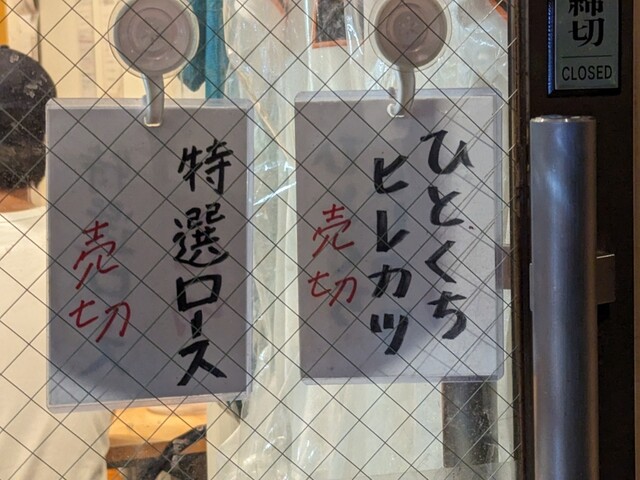 ひとくち
ヒレカツ
売切
特選ロース
売切
締切
CLOSED